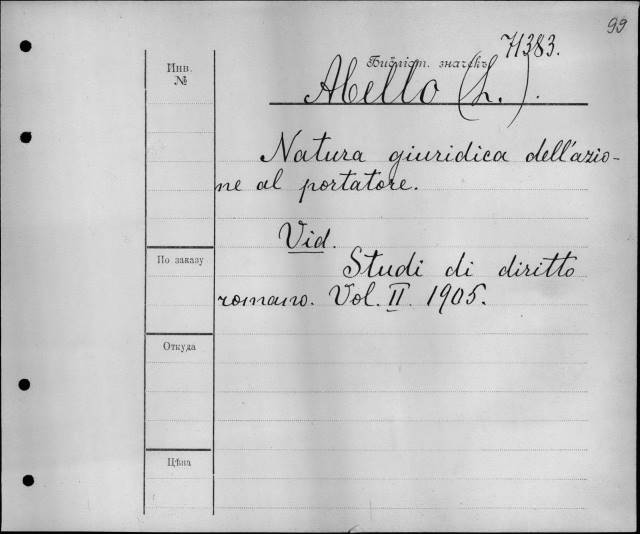 99
71383.
Библіот. значекъ
Инв.
№
Abello (L.).
Natura giuridica dell'azio-
ne al portatore.
Vid.
Studi di diritto
По заказу
romano. Vol. II. 1905.
Откуда
Цѣна